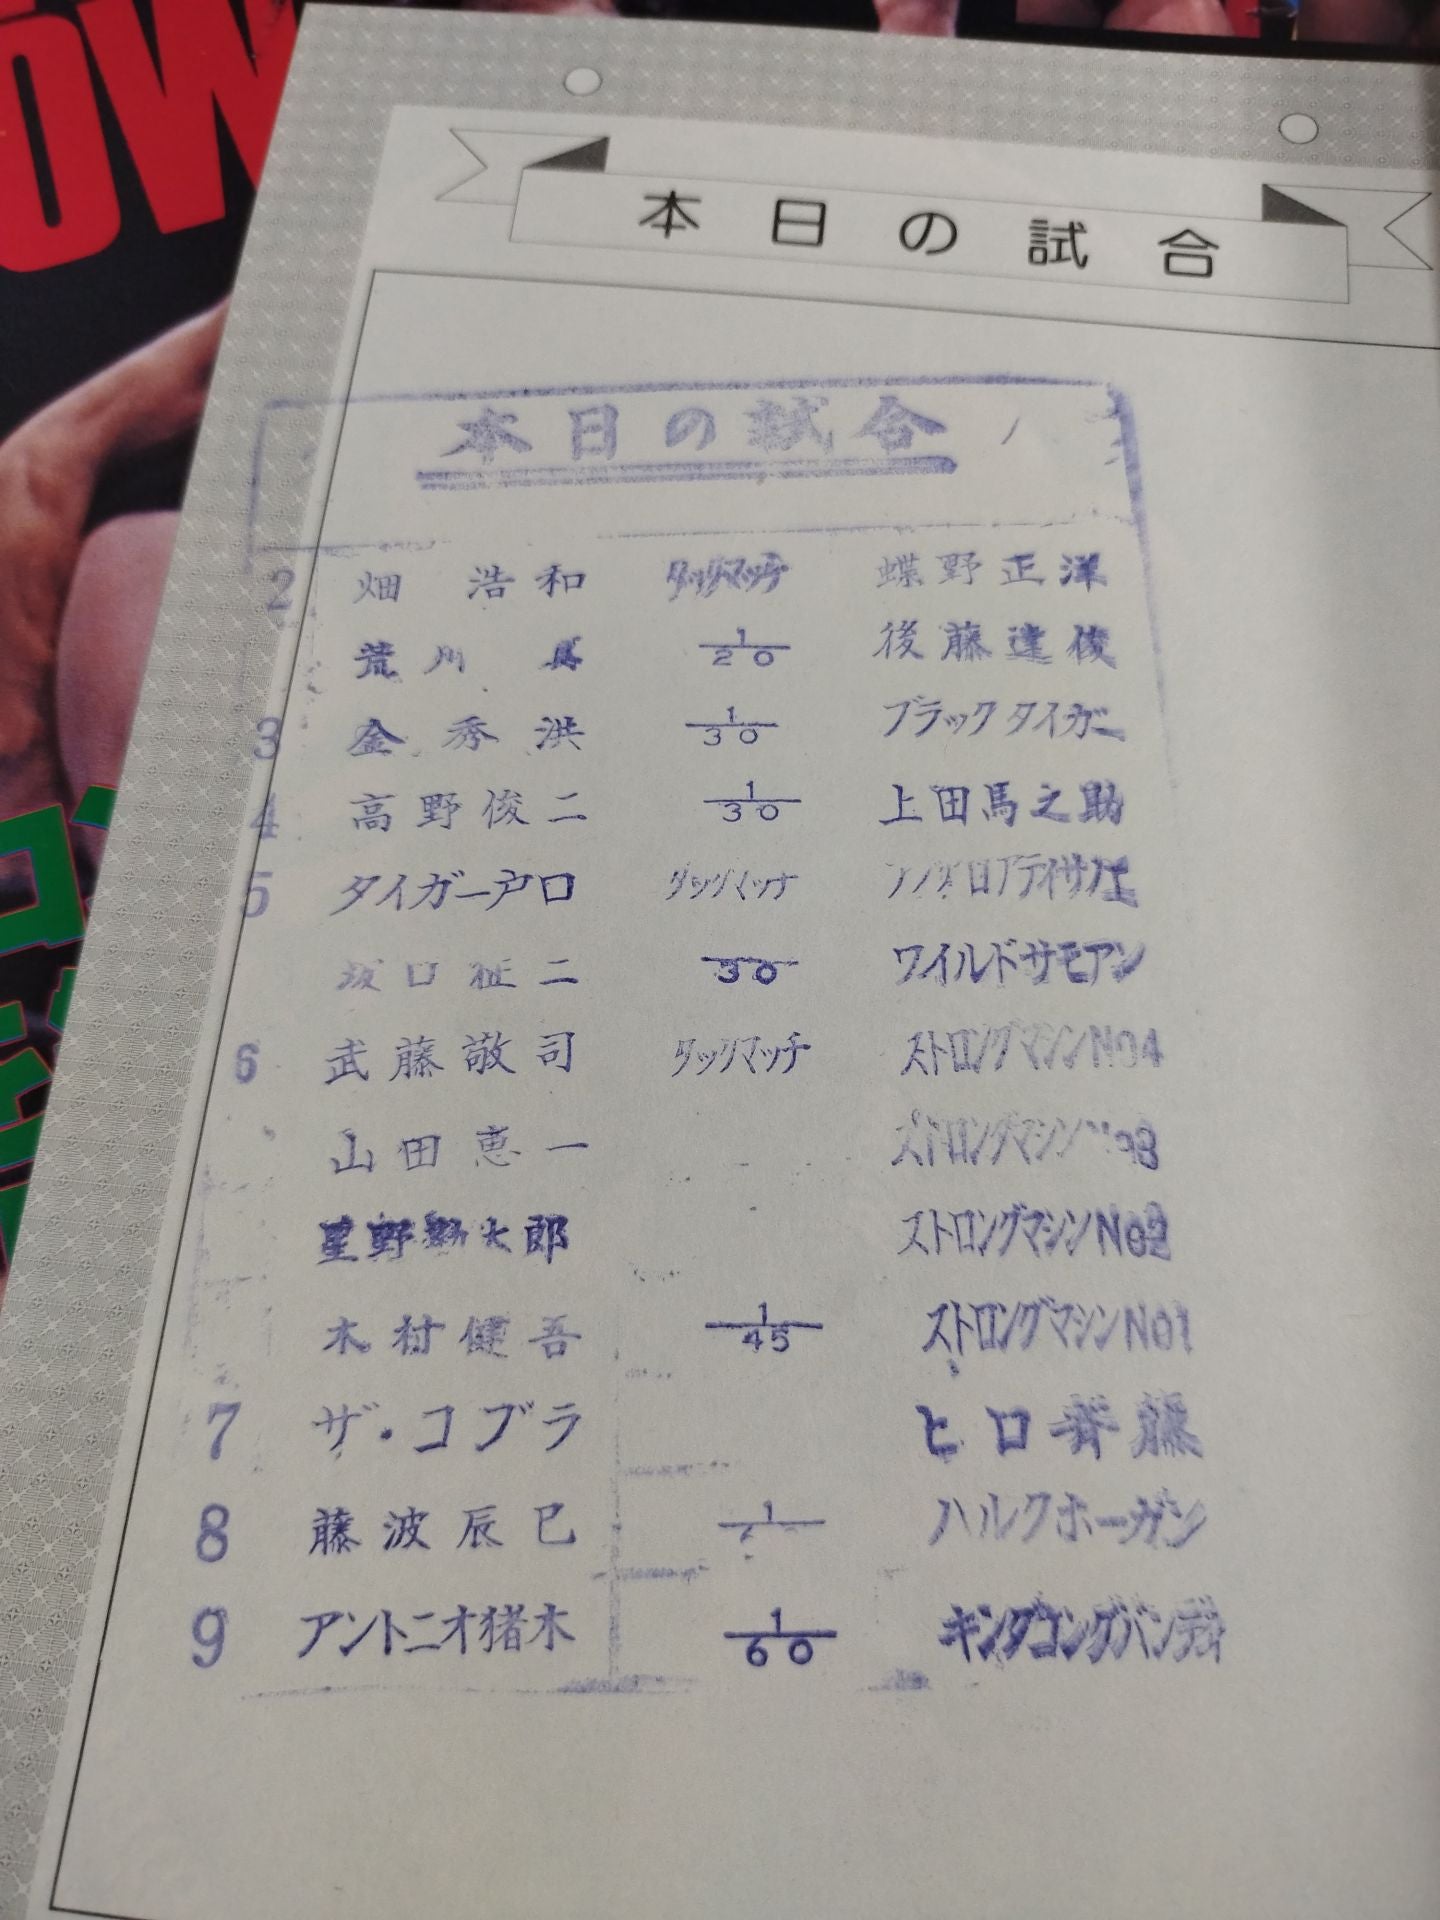 OW
本日の試合
本日の試合
2 畑 浩和 タッグマッチ 蝶野正洋
荒川 真 1/20 後藤達俊
3 金秀洪 1/30 ブラックタイガー
4 高野俊二 1/30 上田馬之助
5 タイガー戸口 タッグマッチ
坂口征二 30 ワイルドサモアン
6 武藤敬司 タッグマッチ ストロングマシンNO4
山田恵一 ストロングマシンNO3
星野勘太郎 ストロングマシンNO2
木村健吾 1/45 ストロングマシンNO1
7 ザ・コブラ ヒロ斉藤
8 藤波辰巳 1 ハルクホーガン
9 アントニオ猪木 1/60 キングコングバンディ